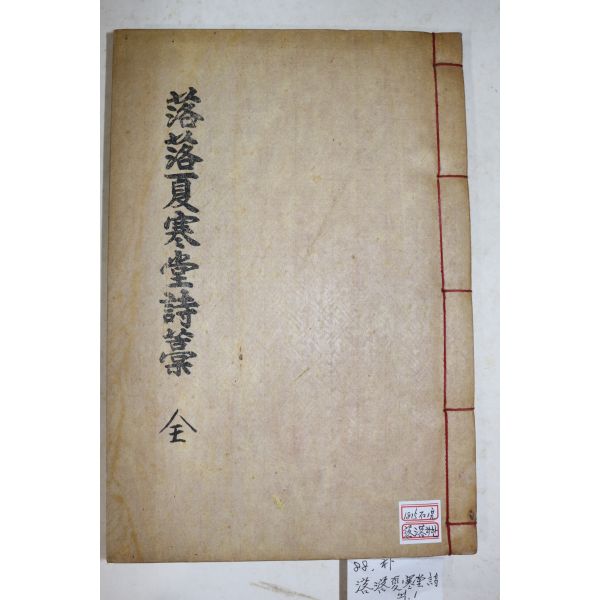 落落夏寒堂詩藁 全
88. 朴
落落夏寒堂詩